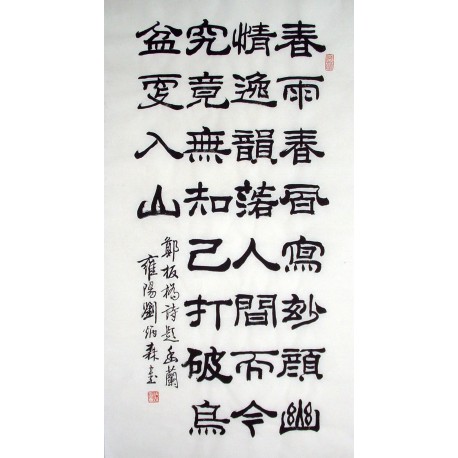 春雨春風寫妙顏幽
情逸韻落人間而今
究竟無知己打破烏
盆更入山
鄭板橋詩題幽蘭
雍陽劉炳森書